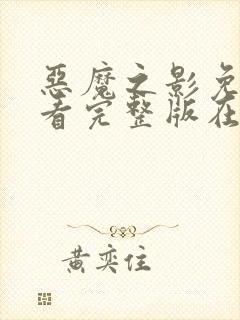 恶魔之影免
看完整版在
黄奕住